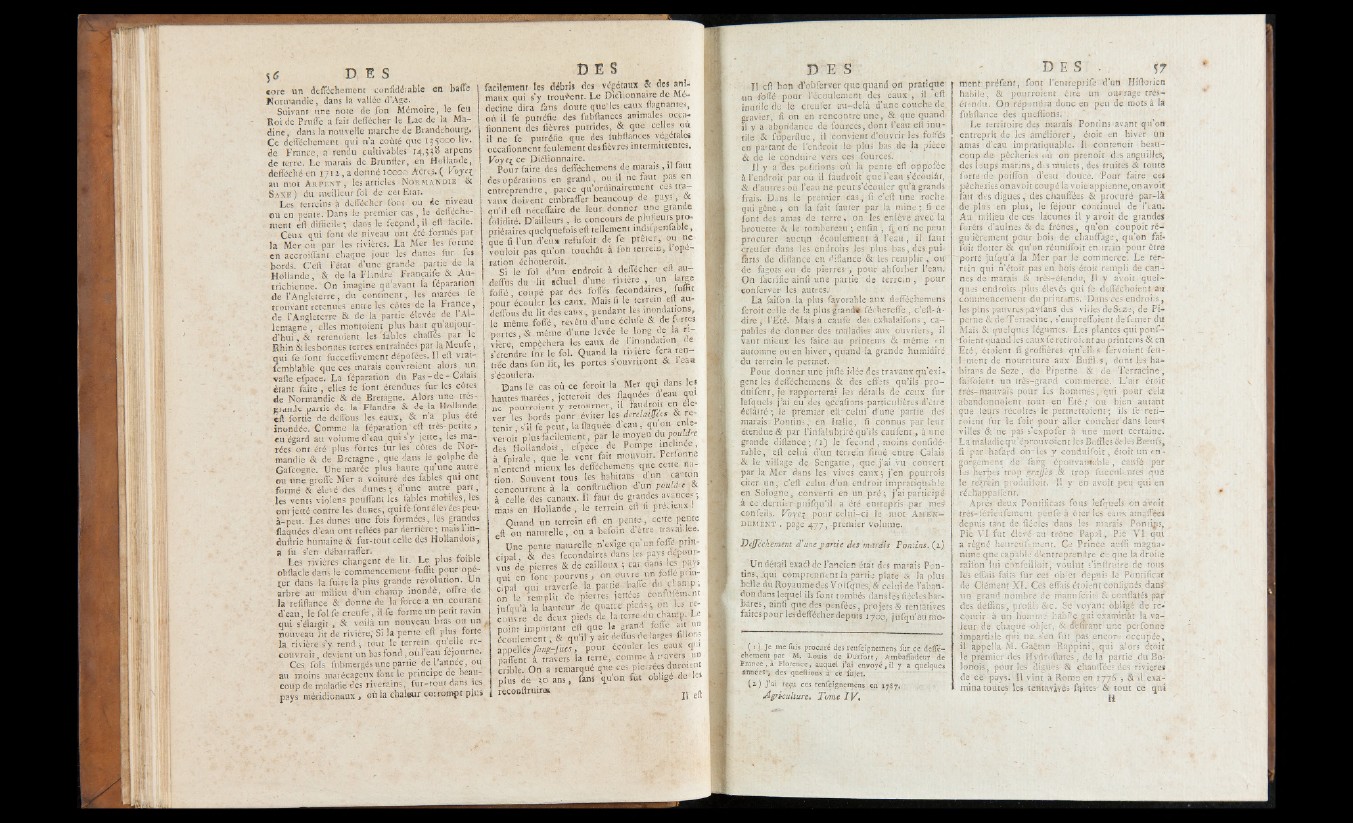 56 DES
core un desséchement considérable en basse
Normandie, dans la vallée d'Age.
Suivant une note de son Mémoire, le feu
Roi de Prusse a fait dessécher le Lac de la Ma-
dine, dans la nouvelle marche de Brandebourg.
Ce desséchement qui n'a coûté que 135000 liv.
de France, a rendu cultivables 14,538 arpens
de terre. Le marais de Brunster, en Hollande,
desséché en 1712, a donné 10000 Acres. ( Voyez
au mot ARPENT, les articles NORMANDIE &
SAXE) du meilleur sol de cet État.
Les terreins à dessécher sont ou de niveau
ou en pente. Dans le premier cas, le desséche-
ment est difficile; dans le second, il est facile.
Ceux qui sont de niveau ont été formés par
la Mer ou par les rivières. La Mer les forme
en accroissant chaque jour les dunes sur ses
bords. C'est l'état d'une grande partie de la
Hollande, & de la Flandre Française & Au-
trichienne. On imagine qu'avant la séparation
de l'Angleterre, du continent, les marées se
trouvant retenues entre les côtes de la France,
de l'Angleterre & de la partie élevée de l'Al-
lemagne, elles montoient plus haut qu'aujour-
d'hui, & retenoient les sables chassés par le
Rhin & les bonnes terres entraînées par la Meuse,
qui se sont successivement déposées. Il est vrai-
semblable que ces marais couvroient alors un
vaste espace. La séparation du Pas-de-Calais
étant faite, elles se sont étendues sur les côtes
de Normandie & de Bretagne. Alors une très-
grande partie de la Flandre & de la Hollande
est sortie de dessous les eaux, & n'a plus été
inondée. Comme la séparation est très-petite,
eu égard au volume d'eau qui s'y jette, les ma-
rées ont été plus fortes sur les côtes de Nor-
mandie & de Bretagne, que dans le golphe de
Gascogne. Une marée plus haute qu'une autre
ou une grosse Mer a voituré des sables qui ont
formé & élevé des dunes; d'une autre part,
les vents violens poussant les sables mobiles, les
ont jetté contre les dunes, qui se sont élevées peu-
à-peu. Les dunes une fois formées, les grandes
flaquées d'eau ont restées par derrière; mais l'in-
dustrie humaine & sur-tout celle des Hollandois,
a su s'en débarrasser.
Les rivières changent de lit. Le plus foible
obstacle dans le commencement suffit pour opé-
rer dans la suite la plus grande révolution. Un
arbre au milieu d'un champ inondé, offre de
la résistance & donne de la force à un courant
d'eau, le sol se creuse, il se forme un petit ravin
qui s'élargit, & voilà un nouveau bras ou un
nouveau lit de rivière. Si la pente est plus forte
la rivière s'y rend; tout le terrein qu'elle re-
couvroit, devient un bas fond, où l'eau séjourne.
Ces sols submergés une partie de l'année, ou
au moins marécageux sont le principe de beau-
coup de maladie des riverains, sur-tout dans les
pays méridionaux, où la chaleur corrompt plus
DES
facilement les débris des végétaux & des ani-
maux qui s'y trouvent. Le Dictionnaire de Mé-
decine dira sans doute que les eaux stagnantes,
où il se putréfie des substances animales occa-
sionnent des fièvres putrides, & que celles où
il ne se putréfie que des substances végétales
occasionnent seulement des fièvres intermittentes.
Voyez ce Dictionnaire.
Pour faire des desséchemens de marais, il faut
des opérations en grand, ou il ne faut pas en
entreprendre, parce qu'ordinairement ces tra-
vaux doivent embrasser beaucoup de pays, &
qu'il est nécessaire de leur donner une grande
solidité. D'ailleurs, le concours de plusieurs pro-
priétaires quelquefois est tellement indispensable,
que si l'un d'eux refusoit de se prêter, ou ne
vouloit pas qu'on touchât à son terrein, l'opé-
ration échoueroit.
Si le sol d'un endroit à dessécher est au-
dessus du lit actuel d'une rivière, un large
fossé, coupé par des fossés secondaires, suffit
pour écouler les eaux. Mais si le terrein est au-
dessous du lit des eaux, pendant les inondations,
le même fossé, revêtu d'une écluse & de fortes
portes, & même d'une levée le long de la ri-
vière, empêchera les eaux de l'inondation de
s'étendre sur le sol. Quand la rivière sera ren-
trée dans son lit, les portes s'ouvriront & l'eau
s'écoulera.
Dans le cas où ce seroit la Mer qui dans les
hautes marées, jetteroit des flaquées d'eau qui
ne pourroient y retourner, il faudroit en éle-
ver les bords pour éviter les derelaissées & re-
tenir, s'il se peut, la flaquée d'eau, qu'on enle-
veroit plus facilement, par le moyen du pouldre
des Hollandois, espèce de Pompe inclinée,
à spirale, que le vent fait mouvoir. Personne
n'entend mieux les desséchemens que cette na-
tion. Souvent tous les habitans d'un canton
concourrent à la construction d'un pouldre &
à celle des canaux. Il faut de grandes avances;
mais en Hollande, le terrein est si précieux!
Quand un terrein est en pente, cette pente
est ou naturelle, ou a besoin d'être travaillée.
Une pente naturelle n'exige qu'un fossé prin-
cipal, & des secondaires dans les pays dépour-
vus de pierres & de cailloux; car dans les pays
qui en sont pourvus, on ouvre un fossé prin-
cipal qui traverse la partie basse du champ;
on le remplit de pierres jettées confusément
jusqu'à la hauteur de quatre pieds; on les re-
couvre de deux pieds de la terre du champ. Le
point important est que le grand fossé ait un
écoulement, & qu'il y ait dessus de larges sillons
appellés sangsues, pour écouler les eaux qui
passent à travers la terre, comme à travers un
crible. On a remarqué que ces pierrées duroient
plus de 30 ans, sans qu'on fût obligé de les
reconstruire.
Il est
DES
Il est bon d'observer que quand on pratique
un fossé pour l'écoulement des eaux, il est
inutile de le creuser au-delà d'une couche de
gravier, si on en rencontre une, & que quand
il y a abondance de sources, dont l'eau est inu-
tile & superflue, il convient d'ouvrir les fossés
en partant de l'endroit le plus bas de la pièce
& de le conduire vers ces sources.
Il y a des positions où la pente est opposée
à l'endroit par où il faudroit que l'eau s'écoulât,
& d'autres où l'eau ne peut s'écouler qu'à grands
frais. Dans le premier cas, si c'est une roche
qui gêne, on la fait sauter par la mine; si ce
sont des amas de terre, on les enlève avec la
brouette & le tombereau; enfin, si on ne peut
procurer aucun écoulement à l'eau, il faut
creuser dans les endroits les plus bas, des pui-
sarts de distance en distance & les remplir, ou
de fagots ou de pierres, pour absorber l'eau.
On sacrifie ainsi une partie de terrein, pour
conserver les autres.
La saison la plus favorable aux desséchemens
seroit celle de la plus grande sécheresse, c'est-à-
dire, l'Été. Mais à cause des exhalaisons, ca-
pables de donner des maladies aux ouvriers, il
vaut mieux les faire au printems & même en
automne ou en hiver, quand la grande humidité
du terrein le permet.
Pour donner une juste idée des travaux qu'exi-
gent les desséchemens & des effets qu'ils pro-
duisent, je rapporterai les détails de ceux sur
lesquels j'ai eu des occasions particulières d'être
éclairé; le premier est celui d'une partie des
marais Pontins, en Italie, si connus par leur
étendue & par l'insalubrité qu'ils causent, à une
grande distance; (1) le second, moins considé-
rable, est celui d'un terrein situé entre Calais
& le village de Sengatte, que j'ai vu couvert
par la Mer dans les vives eaux; j'en pourrois
citer un, c'est celui d'un endroit impraticable
en Sologne, converti en un pré; j'ai participé
à ce dernier puisqu'il a été entrepris par mes
conseils. Voyez pour celui-ci le mot AMEN-
DEMENT, page 477, premier volume.
Desséchement d'une partie des marais Pontins. (2)
Un détail exact de l'ancien état des marais Pon-
tins, qui comprennent la partie plate & la plus
belle du Royaume des Volsques, & celui de l'aban-
don dans lequel ils sont tombés dans les siècles bar-
bares, ainsi que des pensées, projets & tentatives
faites pour les dessécher depuis 1700, jusqu'au mo-
(1) Je me suis procuré des renseignemens sur ce dessé-
chement par M. Louis de Durfort, Ambassadeur de
France, à Florence, auquel j'ai envoyé, il y a quelques
années, des questions à ce sujet.
(2) J'ai reçu ces renseignemens en 1787.
Agriculture. Tome IV.
DES 57
ment présent, sont l'entreprise d'un Historien
habile, & pourroient être un ouvrage très-
étendu. On répondra donc en peu de mots à la
substance des questions.
Le territoire des marais Pontins avant qu'on
entreprît de les améliorer, étoit en hiver un
amas d'eau impraticable. Il contenoit beau-
coup de pêcheries où on prenoit des anguilles,
des loups marins, des mulets, des truites & toute
sorte de poisson d'eau douce. Pour faire ces
pêcheries on avoit coupé la voie appienne, on avoit
fait des digues, des chaussées & procuré par-là
de plus en plus, le séjour continuel de l'eau.
Au milieu de ces lacunes il y avoit de grandes
forêts d'aulnes & de frênes, qu'on coupoit ré-
gulièrement pour bois de chauffage, qu'on fai-
soit flotter & qu'on réunissoit en train pour être
porté jusqu'à la Mer par le commerce. Le ter-
rein qui n'étoit pas en bois étoit rempli de can-
nes de marais & très-étendu. Il y avoit quel-
ques endroits plus élevés qui se desséchoient au
commencement du printems. Dans ces endroits,
les plus pauvres paysans des villes de Seze, de Pi-
perne & de Terracine, s'empressoient de semer du
Maïs & quelques légumes. Les plantes qui pous-
soient quand les eaux se retiroient au printems & en
Été, étoient si grossières qu'elles servoient seu-
lement de nourriture aux Buffles, dont les ha-
bitans de Seze, de Piperne & de Terracine,
faisoient un très-grand commerce. L'air étoit
très-mauvais pour les hommes, qui pour cela
abandonnoient tout en Été; ou bien autant
que leurs récoltes le permettoient; ils se reti-
roient sur le soir pour aller coucher dans leurs
villes & ne pas s'exposer à une mort certaine.
La maladie qu'éprouvoient les Buffles & les Bœufs,
si par hasard on les y conduisoit, étoit un en-
gorgement de sang épouvantable, causé par
les herbes trop grasses & trop succulentes que
le terrein produisoit. Il y en avoit peu qui en
réchappassent.
Après deux Pontificats sous lesquels on avoit
très-sérieusement pensé à ôter les eaux amassées
depuis tant de siècles dans les marais Pontins,
Pie VI fut élevé au trône Papal, Pie VI qui
a régné heureusement. Ce Prince aussi magna-
nime que capable d'entreprendre ce que la droite
raison lui conseilloit, voulut s'instruire de tous
les essais faits sur cet objet depuis le Pontificat
de Clément XI. Ces essais étoient consignés dans
un grand nombre de manuscrits & constatés par
des dessins, profils &c. Se voyant obligé de re-
courir à un homme habile qui examinât la va-
leur de chaque objet, & desirant une personne
impartiale qui ne s'en fût pas encore occupée,
il appella M. Gaëtan Rappini, qui alors étoit
le premier des Hydrostates, de la partie du Bo-
lonois, pour les digues & chaussées des rivières
de ce pays. Il vint à Rome en 1776, & il exa-
mina toutes les tentatives faites & tout ce qui
H